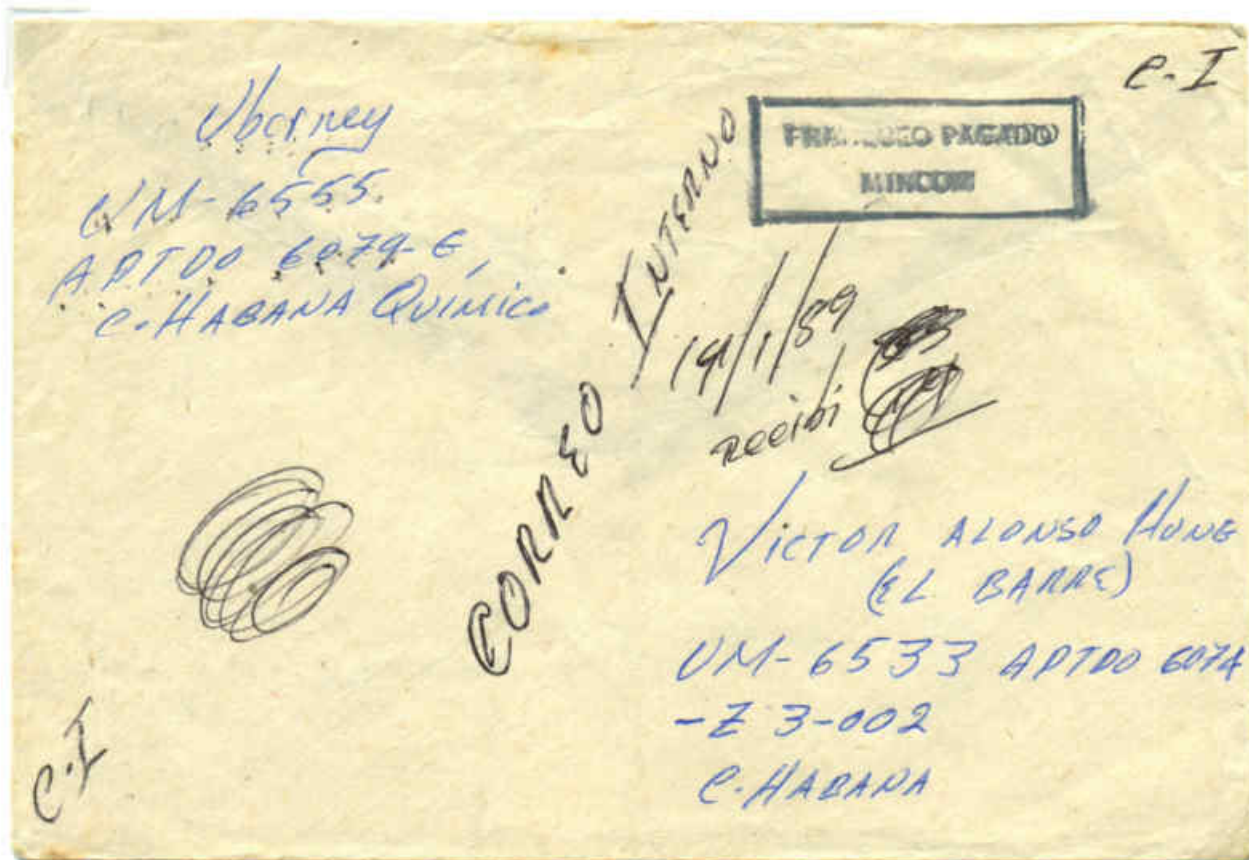 C-I
Uberney
UM-6555.
APTDO 6079-E,
C. HABANA QUIMICO
FRANQUEO PAGADO
MINCOM
CORREO INTERNO
19/1/89
Recibí
VICTOR ALONSO HUNG
(EL BARRE)
UM-6533 APTDO 6074
-Z 3-002
C. HABANA
C.I